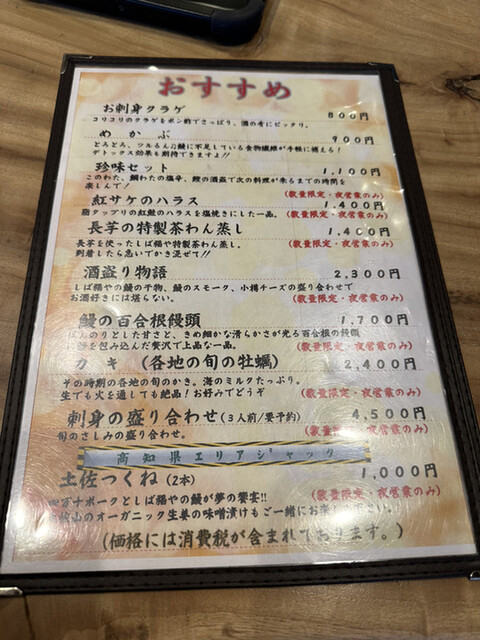 おすすめ
お刺身クラゲ 800円
コリコリのクラゲをポン酢でさっぱり、酒の肴にピッタリ。
めかぶ 900円
とろとろ、ツルるん♫鰻に不足している食物繊維が手軽に補える!
デトックス効果も期待できますよ!!
珍味セット 1,100円
このわた、鯛わたの塩辛、鰹の酒盗で次の料理が来るまでの時間を
楽しんで! (数量限定・夜営業のみ)
紅サケのハラス 1,400円
脂タップリの紅鮭のハラスを塩焼きにした一品。 (数量限定・夜営業のみ)
長芋の特製茶わん蒸し 1,400円
長芋を使ったしば福や特製茶わん蒸し。 (数量限定・夜営業のみ)
到着したら急いでかき混ぜて!!
酒盗り物語 2,300円
しば福やの鰻の干物、鰻のスモーク、小樽チーズの盛り合わせで
お酒好きには堪らない。 (数量限定・夜営業のみ)
鰻の百合根饅頭 1,700円
ほんのりとした甘さと、きめ細かな滑らかさが光る百合根の饅頭
を包み込んだ贅沢で上品な一品。 (数量限定・夜営業のみ)
カキ (各地の旬の牡蠣) 2,400円
その時期の各地の旬のかき。海のミルクたっぷり。
生でも火を通しても絶品!お好みでどうぞ (数量限定・夜営業のみ)
刺身の盛り合わせ(3人前/要予約) 4,500円
旬のさしみの盛り合わせ。 (数量限定・夜営業のみ)
高知県エリアジャック
土佐つくね(2本) 1,000円
四万十ポークとしば福やの鰻が夢の饗宴!! (数量限定・夜営業のみ)
山のオーガニック生姜の味噌漬けもご一緒にお楽し
(価格には消費税が含まれております。)